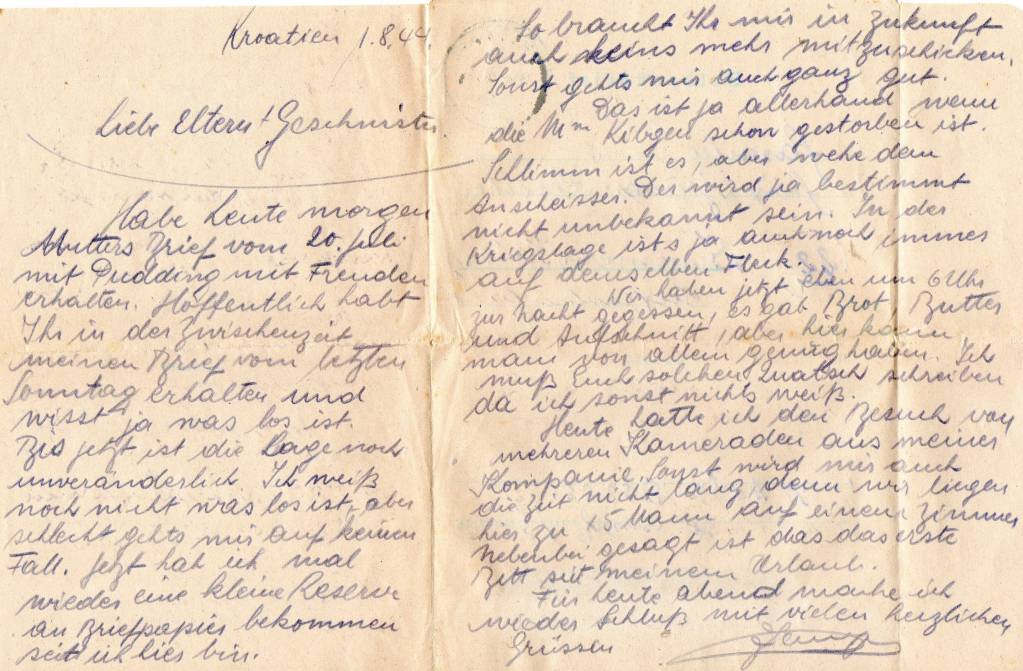 Kroatien 1.8.44.
Liebe Eltern + Geschwister.
Habe heute morgen
Mutters Brief vom 20. Juli
mit Pudding mit Freuden
erhalten. Hoffentlich habt
Ihr in der Zwischenzeit
meinen Brief vom letzten
Sonntag erhalten und
wisst ja was los ist.
Bis jetzt ist die Lage noch
unveränderlich. Ich weiß
noch nicht was los ist, aber
schlecht gehts mir auf keinen
Fall. Jetzt hab ich mal
wieder eine kleine Reserve
an Briefpapier bekommen
seit ich hier bin.
So braucht Ihr mir in Zukunft
auch keins mehr mitzuschicken.
Sonst gehts mir auch ganz gut.
Das ist ja allerhand wenn
die schon gestorben ist.
Schlimm ist es, aber wehe dem
Anscheisser. Der wird ja bestimmt
nicht unbekannt sein. In der
Kriegslage ist s ja auch noch immer
auf demselben Fleck.
Wir haben jetzt eben um 6 Uhr
zur Nacht gegessen, es gab Brot, Butter
und Aufschnitt, aber hier kann
man von allem genug haben. Ich
muß Euch solchen Quatsch schreiben
da ich sonst nichts weiß.
Heute hatte ich den Besuch von
mehreren Kameraden aus meiner
Kompanie. Sonst wird mir auch
die Zeit nicht lang denn wir liegen
hier zu 15 Mann auf einem Zimmer
Nebenbei gesagt ist das das erste
Bett seit meinem Urlaub.
Für heute abend mache ich
wieder Schluß mit vielen herzlichen
Grüssen